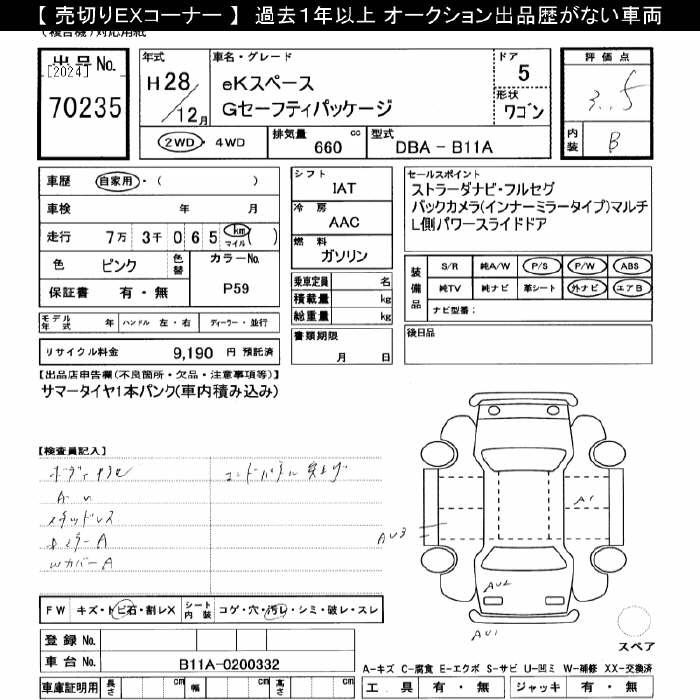 【 売切りEXコーナー 】 過去1年以上 オークション出品歴がない車両
(複合機)対応用紙
出品No.
[2024]
70235
年式
H28/12月
車名・グレード
eKスペース
Gセーフティパッケージ
ドア
5
形状
ワゴン
評価点
3.5
内装
B
2WD・4WD
排気量
660 cc
型式
DBA - B11A
車歴 自家用・( )
車検 年 月
走行 7万 3千 0 6 5 km マイル ( )
色 ピンク 色替 カラーNo.
P59
保証書 有・無
シフト
IAT
冷房
AAC
燃料
ガソリン
乗車定員 名
積載量 kg
総重量 kg
セールスポイント
ストラーダナビ・フルセグ
バックカメラ(インナーミラータイプ)マルチ
L側パワースライドドア
装備品
S/R 純A/W P/S P/W ABS
純TV 純ナビ 革シート 外ナビ エアB
ナビ型番:
モデル年式 年 ハンドル 左・右 ディーラー・並行
書類期限
月 日
後日品
リサイクル料金 9,190 円 預託済
【出品店申告欄(不良箇所・欠品・注意事項等)】
サマータイヤ1本パンク(車内積み込み)
【検査員記入】
A
スタッドレス
ドアミラーA
WカバーA
A1
AU3
AU2
AU1
FW キズ・トビ石・割レX シート内装 コゲ・穴・汚レ・シミ・破レ・スレ
登録No.
車台No. B11A-0200332
車庫証明用 長さ cm 幅 cm 高さ cm
スペア
A-キズ C-腐食 E-エクボ S-サビ U-凹ミ W-補修 XX-交換済
工具 有・無 ジャッキ 有・無